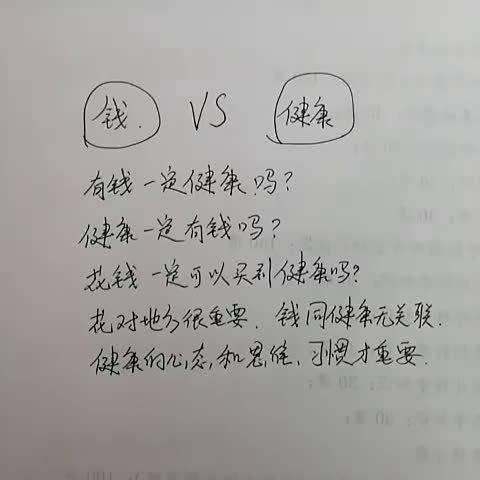 钱. VS 健康
有钱一定健康吗?
健康一定有钱吗?
花钱一定可以买到健康吗?
花对地方很重要. 钱同健康无关联.
健康的心态,和思维、习惯才重要.